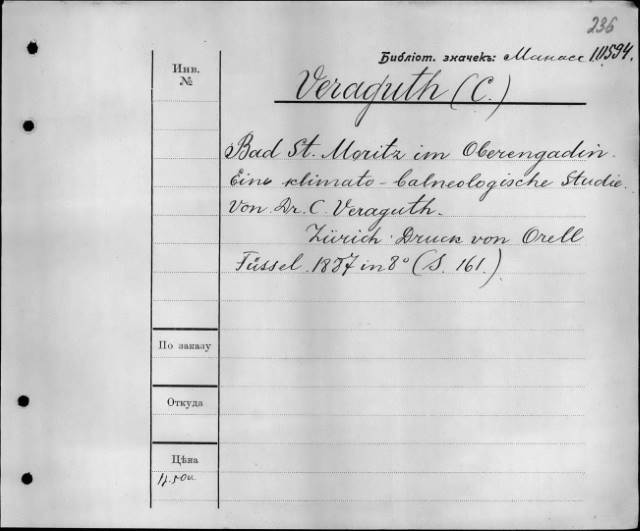 236
Библіот. значекъ: Манасс 111594.
Инв.
№
Veraguth (C.)
Bad St. Moritz im Oberengadin.
Eine klimato-balneologische Studie.
Von Dr. C. Veraguth.
Zürich. Druck von Orell
Füssel. 1887 in 8° (S. 161.)
По заказу
Откуда
Цѣна